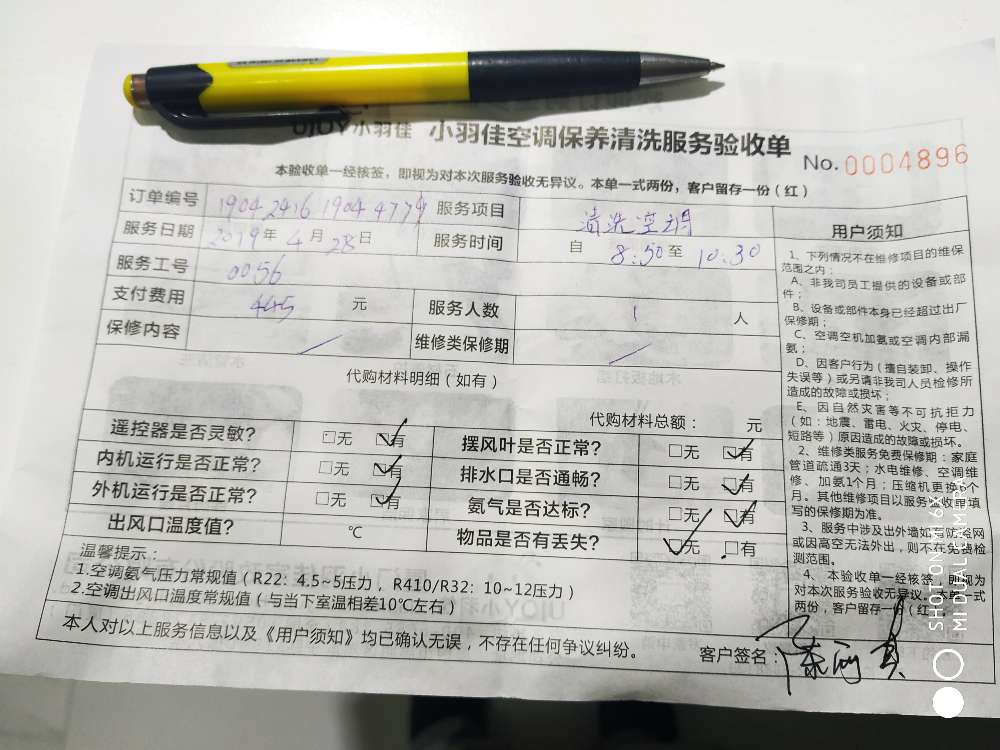 UJOY小羽佳 小羽佳空调保养清洗服务验收单
No.0004896
本验收单一经核签，即视为对本次服务验收无异议。本单一式两份，客户留存一份（红）
订单编号 19042416 19044779 服务项目 清洗空调
服务日期 2019年4月28日 服务时间 自 8:50至 10:30
服务工号 0056
支付费用 445 元 服务人数 1 人
保修内容 / 维修类保修期 /
代购材料明细（如有）
代购材料总额： 元
遥控器是否灵敏？ □无 ☑有 摆风叶是否正常？ □无 ☑有
内机运行是否正常？ □无 ☑有 排水口是否通畅？ □无 ☑有
外机运行是否正常？ □无 ☑有 氨气是否达标？ □无 ☑有
出风口温度值？ ℃ 物品是否有丢失？ ☑无 □有
温馨提示：
1.空调氨气压力常规值（R22：4.5~5压力，R410/R32：10~12压力）
2.空调出风口温度常规值（与当下室温相差10℃左右）
本人对以上服务信息以及《用户须知》均已确认无误，不存在任何争议纠纷。 客户签名：
用户须知
1、下列情况不在维修项目的维保
范围之内：
A、非我司员工提供的设备或部
件；
B、设备或部件本身已经超过出厂
保修期；
C、空调空机加氨或空调内部漏
氨；
D、因客户行为（擅自装卸、操作
失误等）或另请非我司人员检修所
造成的故障或损坏；
E、因自然灾害等不可抗拒力
（如：地震、雷电、火灾、停电、
短路等）原因造成的故障或损坏。
2、维修类服务免费保修期：家庭
管道疏通3天；水电维修、空调维
修、加氨1个月；压缩机更换6个
月。其他维修项目以服务验收单填
写的保修期为准。
3、服务中涉及出外墙如遇防盗网
或因高空无法外出，则不在免费检
测范围。
4、本验收单一经核签，即视为
对本次服务验收无异议。本单一式
两份，客户留存一份（红）。
SHOT ON MI 6X
MI DUAL CAMERA